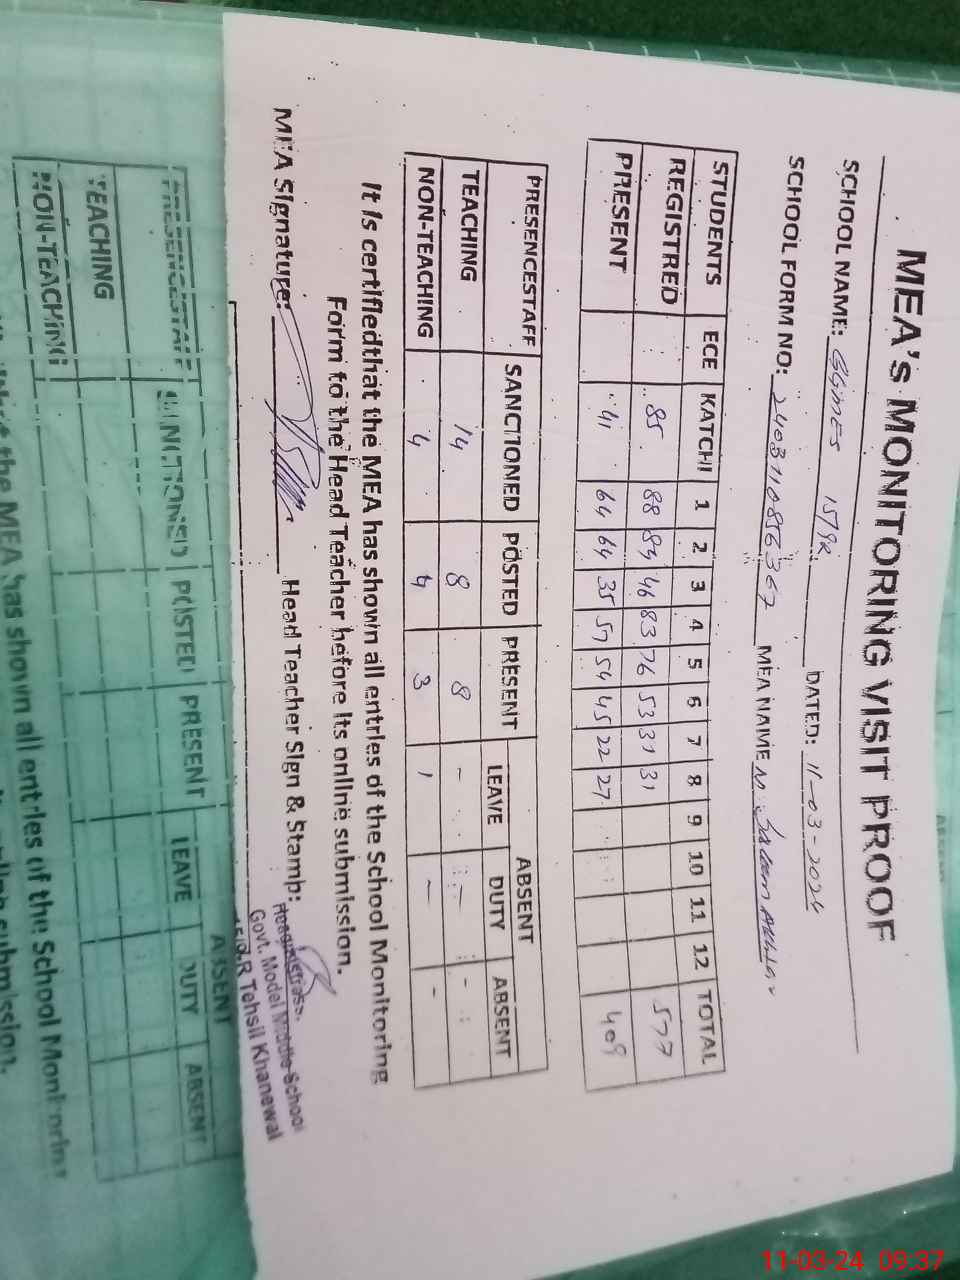 MEA's MONITORING VISIT PROOF
SCHOOL NAME: GGMES 15/9R DATED: 11-03-2024
SCHOOL FORM NO: MEA NAME M.
STUDENTS ECE KATCHI 1 2 3 4 5 6 7 8 9 10 11 12 TOTAL
REGISTRED 85 88 84 46 83 76 53 31 31 577
PRESENT 41 64 64 35 57 54 45 22 27 409
PRESENCESTAFF SANCTIONED POSTED PRESENT ABSENT
LEAVE DUTY ABSENT
TEACHING 14 8 8 - - -
NON-TEACHING 4 4 3 1 - -
It is certifiedthat the MEA has shown all entries of the School Monitoring
Form to the Head Teacher before its online submission.
MEA Signature: Head Teacher Sign & Stamp:
Headmistress,
Govt. Model Middle School
15/9.R Tehsil Khanewal
ABSENT
PRESENCESTAFF SANCTIONED POSTED PRESENT LEAVE DUTY ABSENT
TEACHING
NON-TEACHING
the MEA has shown all entries of the School Monitoring
submission.
11-03-24 09:37